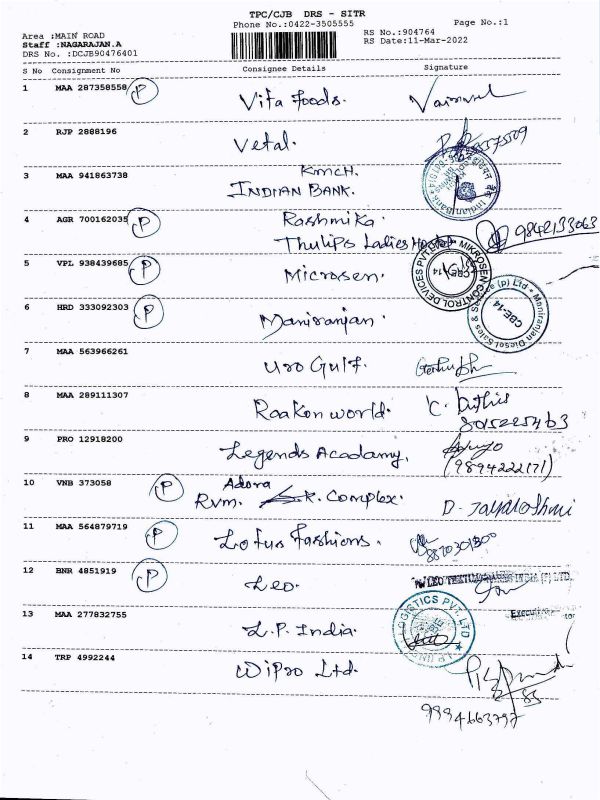 TPC/CJB DRS - SITR
Phone No.:0422-3505555
Page No.:1
Area :MAIN ROAD
RS No.:904764
Staff :NAGARAJAN.A
RS Date:11-Mar-2022
DRS No. :DCJB90476401
S No Consignment No Consignee Details Signature
1 MAA 287358558 P Vita Foods.
2 RJP 2888196 Vetal.
3 MAA 941863738 KMCH.
INDIAN BANK.
4 AGR 700162035 P Rashmika. 9842133063
Thulips Ladies Hostel
5 VPL 938439685 P Microsen. MIKROSEN CONTROL DEVICES PVT LTD CBE-14
6 HRD 333092303 P Maniranjan. Maniranjan Diesel Sales & Service (p) Ltd CBE-14
7 MAA 563966261 Uro Gulf.
8 MAA 289111307 Raakon world.
8015225463
9 PRO 12918200 Legends Acadamy.
(9894222171)
10 VNB 373058 P Adora
Rvm. Complex. D. Jayalakshmi
11 MAA 564879719 P Lotus Fashions.
12 BNR 4851919 P Leo. INDIA (P) LTD.
13 MAA 277832755 L.P. India. LOGISTICS PVT. LTD
14 TRP 4992244 Wipro Ltd.
9994663797